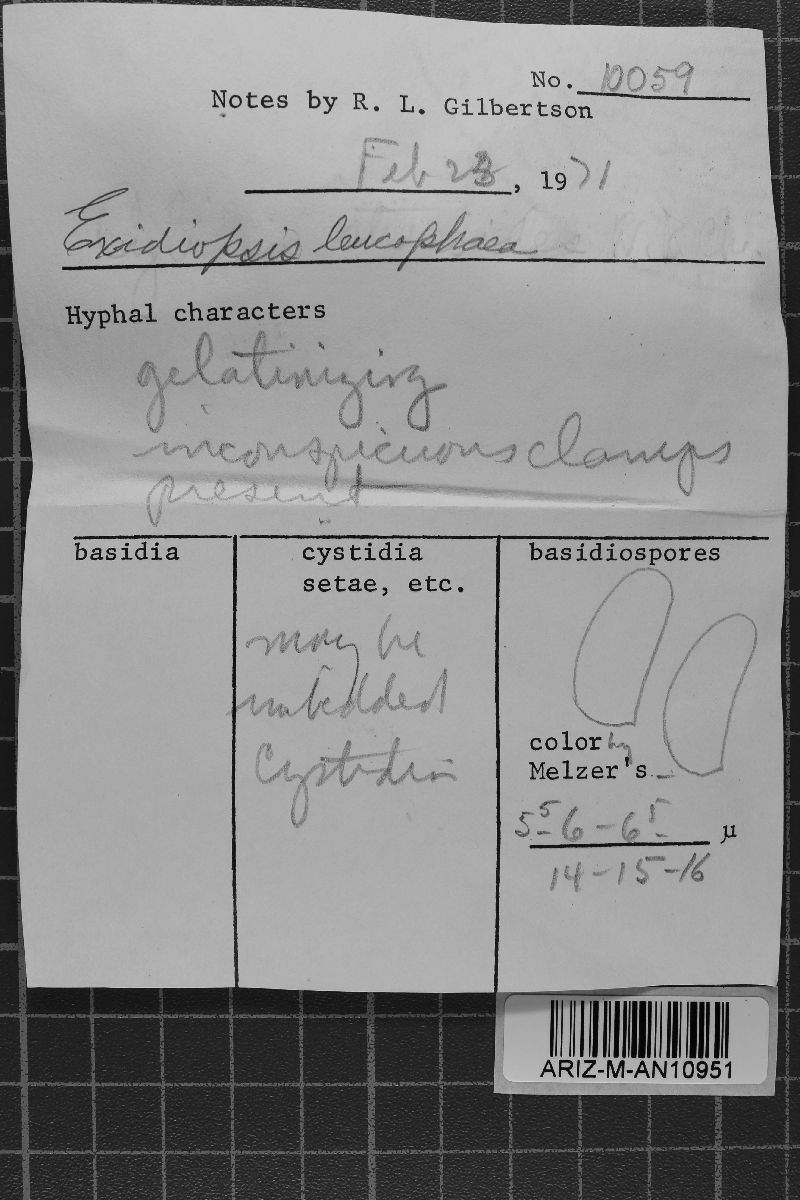 No. 10059
Notes by R. L. Gilbertson
Feb 23, 1971
Exidiopsis leucophaea
Hyphal characters
gelatinizing
inconspicuous clamps
present
basidia
cystidia
setae, etc.
may be
imbedded
Cystidia
basidiospores
color hy
Melzer's –
5.5-6-6.5 µ
14-15-16
ARIZ-M-AN10951